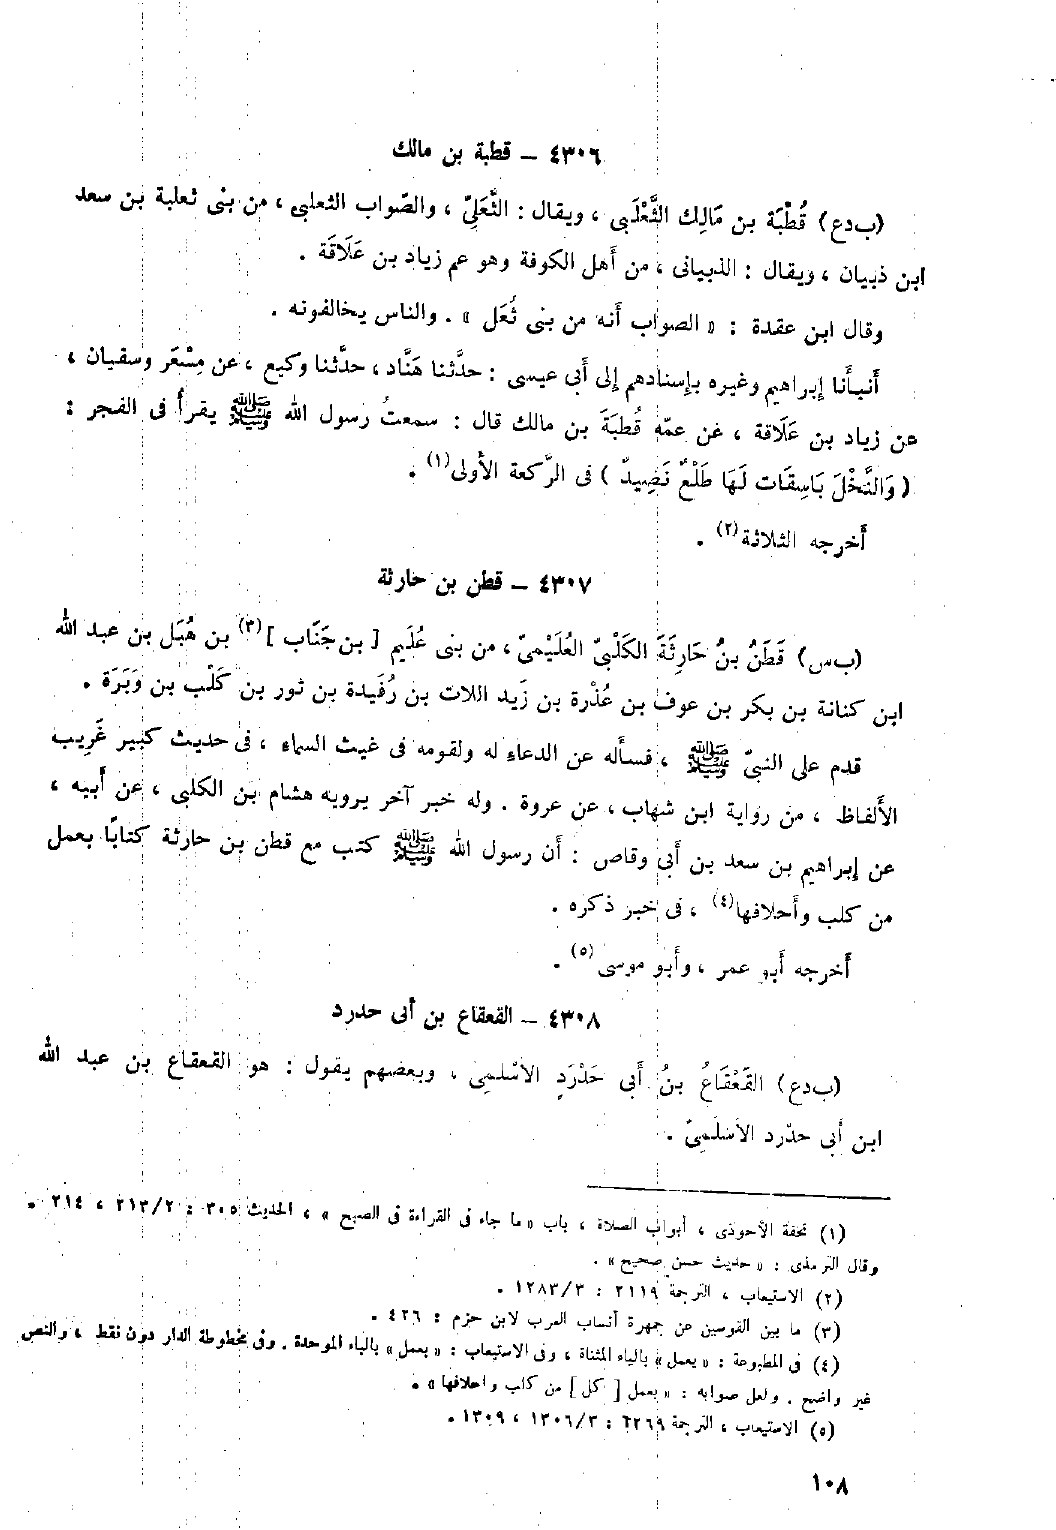 ٤٣٠٦ – قطبة بن مالك
(ب د ع) قُطْبَة بن مَالِك الثَّعْلَبى ، ويقال : الثَّعَلِىّ ، والصّواب الثعلبى ، من بنى ثعلبة بن سعد
ابن ذبيان ، ويقال : الذبيانى ، من أهل الكوفة وهو عم زياد بن عَلَاقَة .
وقال ابن عقدة : « الصواب أنه من بنى ثُعَل » . والناس يخالفونه .
أنبأنا إبراهيم وغيره بإسنادهم إلى أبى عيسى : حدَّثنا هَنَّاد ، حدَّثنا وكيع ، عن مِسْعَر وسفيان ،
عن زياد بن عَلَاقة ، عن عمّه قُطبَةَ بن مالك قال : سمعتُ رسول الله ﷺ يقرأ فى الفجر :
( وَالنَّخْلَ بَاسِقَات لَهَا طَلْعٌ نَضِيدٌ ) فى الرَّكعة الأولى(١) .
أخرجه الثلاثة(٢) .
٤٣٠٧ – قطن بن حارثة
(ب س) قَطَنُ بنُ حَارِثَةَ الكَلْبىّ العُلَيْمىّ ، من بنى عُلَيم [ بن جَنَاب ](٣) بن هُبَل بن عبد الله
ابن كنانة بن بكر بن عوف بن عُذْرة بن زَيد اللات بن رُفَيدة بن ثور بن كَلْب بن وَبَرَة .
قدم على النبىّ ﷺ ، فسأله عن الدعاء له ولقومه فى غيث السماء ، فى حديث كبير غَرِيب
الألفاظ ، من رواية ابن شهاب ، عن عروة . وله خبر آخر يرويه هشام بن الكلبى ، عن أبيه ،
عن إبراهيم بن سعد بن أبى وقاص : أن رسول الله ﷺ كتب مع قطن بن حارثة كتابًا بعمل
من كلب وأحلافها(٤) ، فى خبر ذكره .
أخرجه أبو عمر ، وأبو موسى(٥) .
٤٣٠٨ – القعقاع بن أبى حدرد
(ب د ع) القَعْقَاعُ بنُ أَبى حَدْرَدٍ الأسْلمِى ، وبعضهم يقول : هو القعقاع بن عبد الله
ابن أبى حدْرد الأسْلَمِىّ .
(١) تحفة الأحوذى ، أبواب الصلاة ، باب « ما جاء فى القراءة فى الصبح » ، الحديث ٣٠٥ : ٢١٣/٢ ، ٢١٤ .
وقال الترمذى : « حديث حسن صحيح » .
(٢) الاستيعاب ، الترجمة ٢١١٩ : ١٢٨٣/٣ .
(٣) ما بين القوسين عن جمهرة أنساب العرب لابن حزم : ٤٢٦ .
(٤) فى المطبوعة : « يعمل » بالياء المثناة ، وفى الاستيعاب : « بعمل » بالباء الموحدة . وفى مخطوطة الدار دون نقط ، والنص
غير واضح . ولعل صوابه : « بعمل [ كل ] من كلب وأحلافها » .
(٥) الاستيعاب ، الترجمة ٢٢٦٩ : ١٣٠٦/٣ ، ١٣٠٩ .
١٠٨